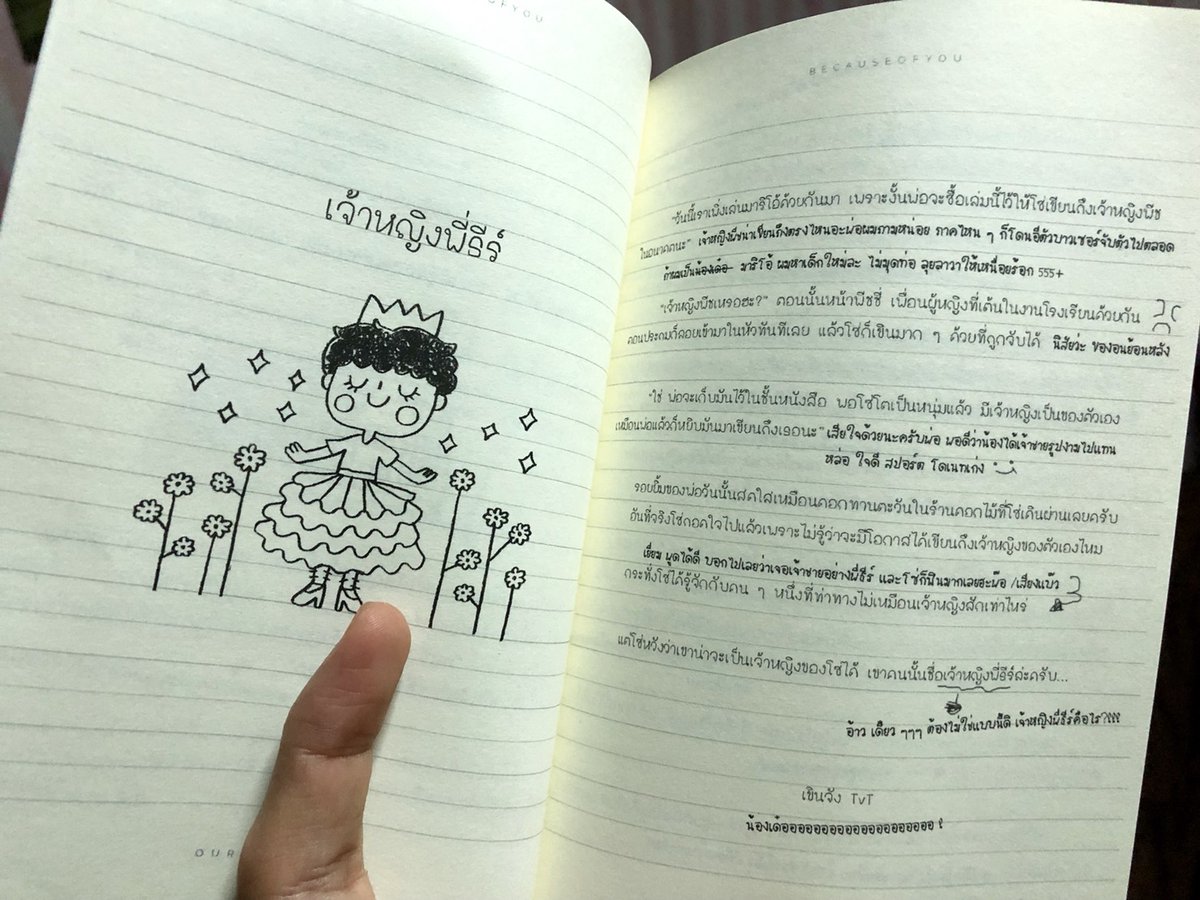 OFYOU
เจ้าหญิงพี่ธีร์
OUR
BECAUSEOFYOU
"วันนี้เราเพิ่งเล่นมาริโอ้ด้วยกันมา เพราะงั้นพ่อจะซื้อเล่มนี้ไว้ให้โซ่เขียนถึงเจ้าหญิงพีช
ในอนาคตนะ" เจ้าหญิงพีชน่าเขียนถึงตรงไหนอะพ่อผมถามหน่อย ภาคไหน ๆ ก็โดนอีตัวบาวเซอร์จับตัวไปตลอด
ถ้าผมเป็นน้องเด๋อ มาริโอ้ ผมหาเด็กใหม่ละ ไม่มุดท่อ ลุยลาวาให้เหนื่อยร้อก 555+
"เจ้าหญิงพีชเหรอฮะ?" ตอนนั้นหน้าพีชชี่ เพื่อนผู้หญิงที่เต้นในงานโรงเรียนด้วยกัน
ตอนประถมก็ลอยเข้ามาในหัวทันทีเลย แล้วโซ่ก็เขินมาก ๆ ด้วยที่ถูกจับได้ นิสัยว่ะ ของอนย้อนหลัง
"ใช่ พ่อจะเก็บมันไว้ในชั้นหนังสือ พอโซ่โตเป็นหนุ่มแล้ว มีเจ้าหญิงเป็นของตัวเอง
เหมือนพ่อแล้วก็หยิบมันมาเขียนถึงเธอนะ" เสียใจด้วยนะครับพ่อ พอดีว่าน้องได้เจ้าชายรูปงามไปแทน
หล่อ ใจดี สปอร์ต โดเนทเก่ง
รอยยิ้มของพ่อวันนั้นสดใสเหมือนดอกทานตะวันในร้านดอกไม้ที่โซ่เดินผ่านเลยครับ
อันที่จริงโซ่ถอดใจไปแล้วเพราะไม่รู้ว่าจะมีโอกาสได้เขียนถึงเจ้าหญิงของตัวเองไหม
เยี่ยม พูดได้ดี บอกไปเลยว่าเจอเจ้าชายอย่างพี่ธีร์ และโซ่ก็ฟินมากเลยฮะพ่อ /เสียงแบ๊ว
กระทั่งโซ่ได้รู้จักกับคน ๆ หนึ่งที่ท่าทางไม่เหมือนเจ้าหญิงสักเท่าไหร่
แต่โซ่หวังว่าเขาน่าจะเป็นเจ้าหญิงของโซ่ได้ เขาคนนั้นชื่อเจ้าหญิงพี่ธีร์ล่ะครับ...
อ้าว เดี๋ยว ๆๆๆ ต้องไม่ใช่แบบนี้ดิ เจ้าหญิงพี่ธีร์คือไร?
เขินจัง TvT
น้องเด๋ออออออออออออออออออออ !